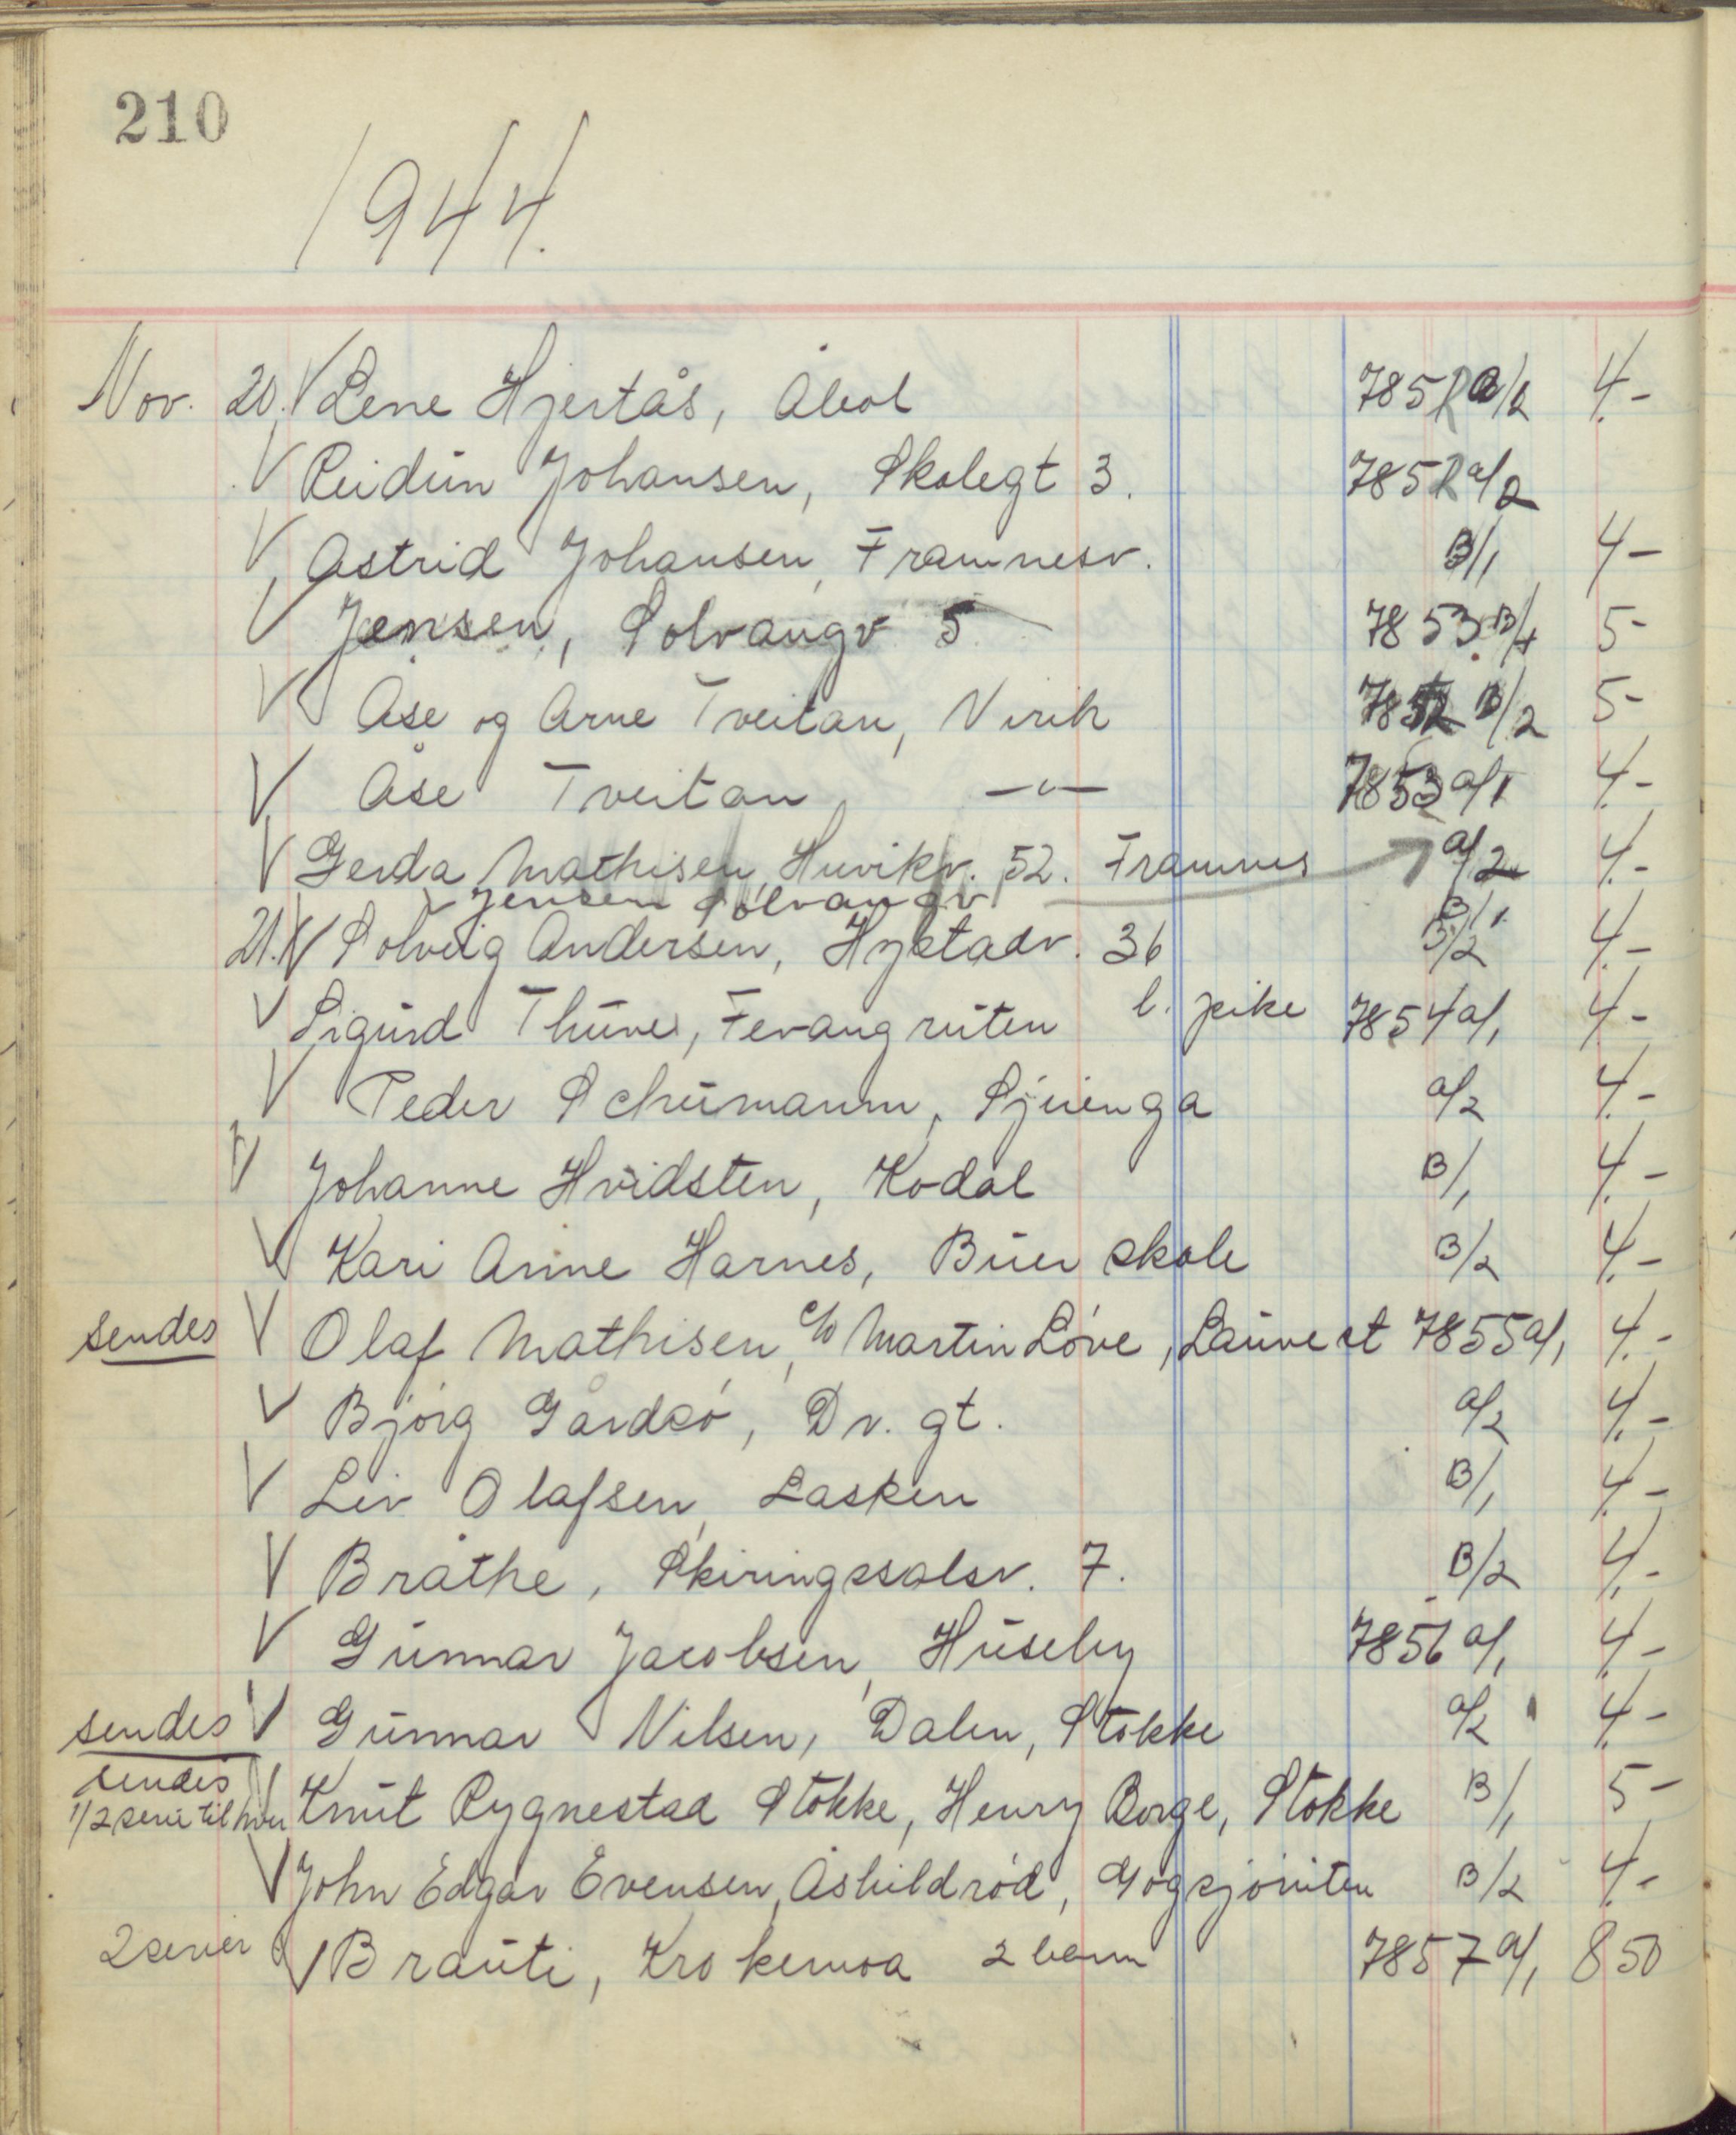 210
1944.
Nov. 20. V Lene Hjertås, Åbol 785 a/2 4.-
V Reidun Johansen, Skolegt 3. 785 a/2
V Astrid Johansen, Framnesv. B/1 4-
V Jensen, Solvangv 5 7853 B/ 5-
V Åse og Arne Tveitan, Virik 7852 B/2 5-
V Åse Tveitan -"- 7853 a/1 4.-
V Gerda Mathisen, Huvikv. 52. Framnes a/2 4.-
V Jensen Solvangv B/1
21. V Solveig Andersen, Hystadv. 36 B/2 4.-
V Sigurd Thune, Fevangruten l. pike 7854 a/1 4-
V Peder Schumann, Sjuenga a/2 4.-
V Johanne Hvidsten, Kodal B/1 4.-
V Kari Anne Harnes, Buer skole B/2 4.-
sendes V Olaf Mathisen, c/o Martin Löve, Lauve st 7855 a/1 4.-
V Björg Gårdsö, Dr. gt. a/2 4.-
V Liv Olafsen, Lasken B/1 4-
V Bråthe, Skiringssalsv. 7. B/2 4.-
V Gunnar Jacobsen, Huseby 7856 a/1 4.-
sendes V Gunnar Nilsen, Dalen, Stokke a/2 4.-
sendes
1/2 serie til hver V Knut Rygnestad Stokke, Henry Borge, Stokke B/1 5-
V John Edgar Evensen, Åshildröd, Gogsjöruten B/2 4.-
2 serier V Brauti, Krokemoa 2 barn 7857 a/1 850